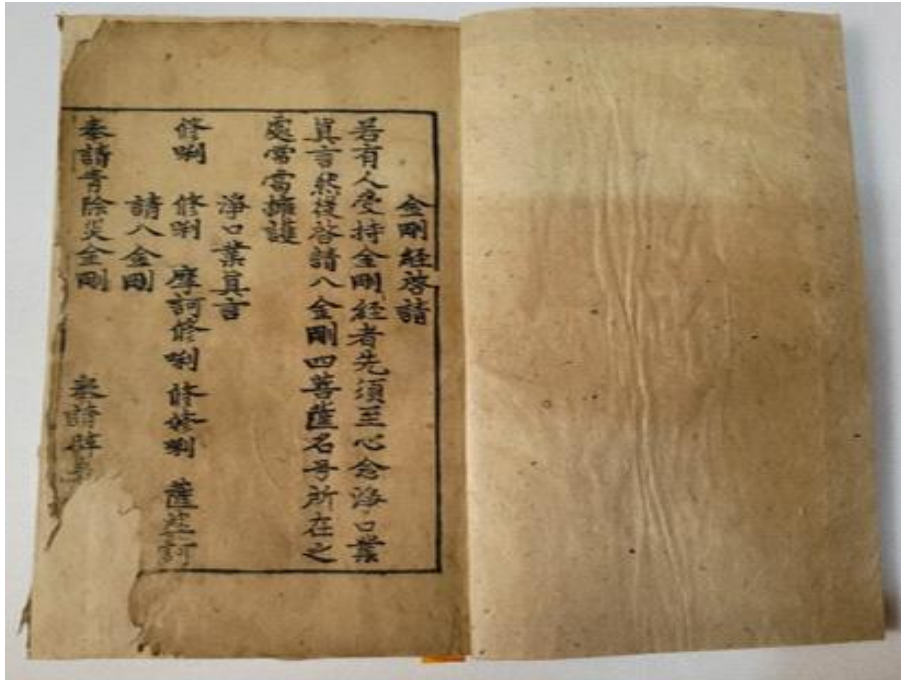 金剛經啓請
若有人受持金剛經者先須至心念淨口業
眞言然後啓請八金剛四菩薩名号所在之
處常當擁護
淨口業眞言
修唎 修唎 摩訶修唎 修修唎 薩婆訶
請八金剛
奉請青除災金剛 奉請辟